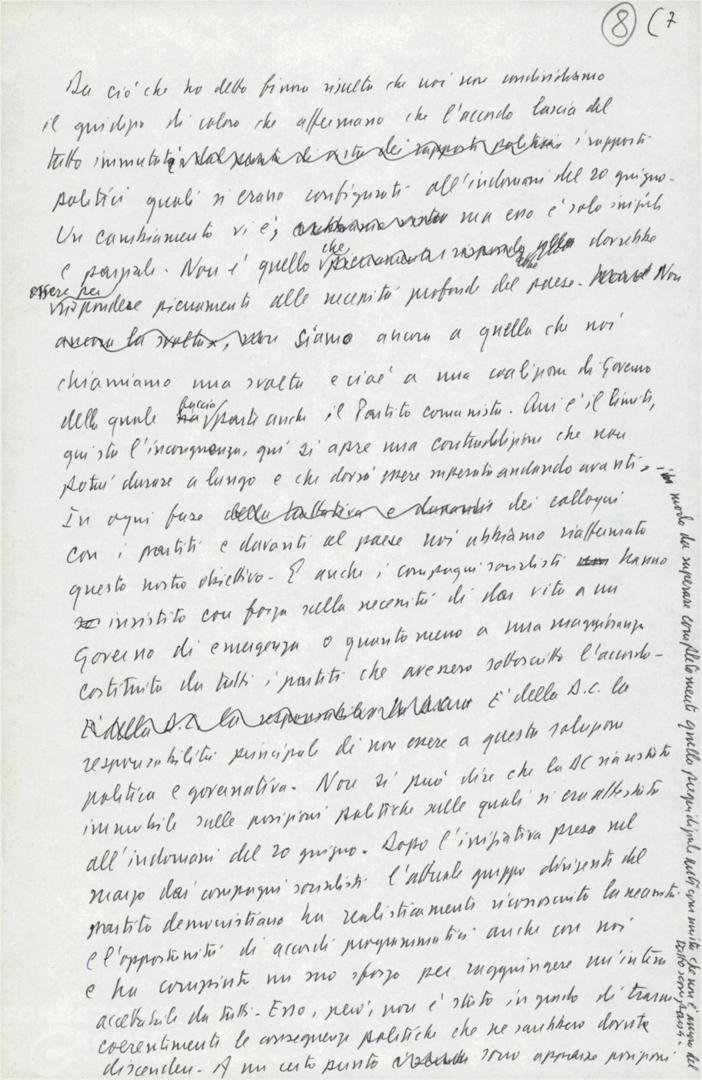 8 (7
Da ciò che ho detto finora risulta che noi non condividiamo
il giudizio di coloro che affermano che l'accordo lascia del
tutto immutati dal punto di vista dei rapporti politici i rapporti
politici quali si erano configurati all'indomani del 20 giugno.
Un cambiamento vi è, ma esso è solo iniziale
e parziale. Non è quello che dovrebbe
essere per
rispondere pienamente alle necessità profonde del paese. Non
ancora la svolta, siamo ancora a quella che noi
chiamiamo una svolta e cioè a una coalizione di Governo
della quale faccia parte anche il Partito comunista. Qui è il limite,
qui sta l'incongruenza, qui si apre una contraddizione che non
potrà durare a lungo e che dovrà essere superata andando avanti,
in modo da superare completamente quella pregiudiziale anticomunista che non è ancora del
tutto scomparsa.
In ogni fase della trattativa e davanti dei colloqui
con i partiti e davanti al paese noi abbiamo riaffermato
questo nostro obiettivo. E anche i compagni socialisti hanno
insistito con forza sulla necessità di dar vita a un
Governo di emergenza o quanto meno a una maggioranza
costituita da tutti i partiti che avessero sottoscritto l'accordo.
E' della D.C. la responsabilità E' della D.C. la
responsabilità principale di non essere a questa soluzione
politica e governativa. Non si può dire che la DC sia restata
immobile sulle posizioni politiche sulle quali si era attestata
all'indomani del 20 giugno. Dopo l'iniziativa presa nel
marzo dai compagni socialisti l'attuale gruppo dirigente del
partito democristiano ha realisticamente riconosciuto la necessità
e l'opportunità di accordi programmatici anche con noi
e ha compiuto un suo sforzo per raggiungere un'intesa
accettabile da tutti. Esso, però, non è stato in grado di trarne
coerentemente le conseguenze politiche che ne sarebbero dovute
discendere. A un certo punto sono apparse posizioni